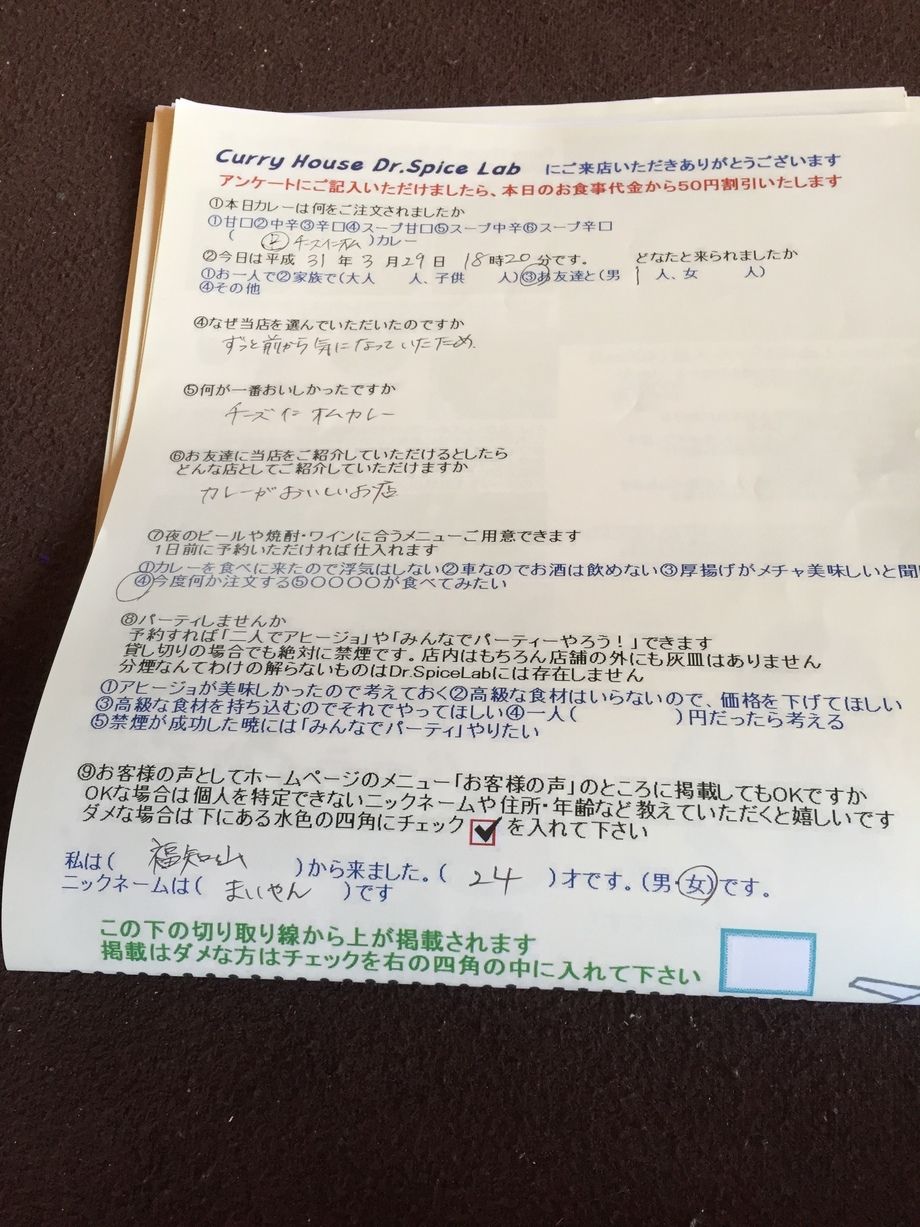 Curry House Dr.Spice Lab にご来店いただきありがとうございます
アンケートにご記入いただけましたら、本日のお食事代金から50円割引いたします
①本日カレーは何をご注文されましたか
①甘口②中辛③辛口④スープ甘口⑤スープ中辛⑥スープ辛口
( ② チーズ )カレー
②今日は平成 31 年 3 月 29 日 18時20分です。 どなたと来られましたか
①お一人で②家族で(大人 人、子供 人)③お友達と(男 1 人、女 人)
④その他
④なぜ当店を選んでいただいたのですか
ずっと前から気になっていたため.
⑤何が一番おいしかったですか
チーズ オムカレー
⑥お友達に当店をご紹介していただけるとしたら
どんな店としてご紹介していただけますか
カレーがおいしいお店
⑦夜のビールや焼酎・ワインに合うメニューご用意できます
1日前に予約いただければ仕入れます
①カレーを食べに来たので浮気はしない②車なのでお酒は飲めない③厚揚げがメチャ美味しいと聞
④今度何か注文する⑤○○○○が食べてみたい
⑧パーティしませんか
予約すれば「二人でアヒージョ」や「みんなでパーティーやろう！」できます
貸し切りの場合でも絶対に禁煙です。店内はもちろん店舗の外にも灰皿はありません
分煙なんてわけの解らないものはDr.SpiceLabには存在しません
①アヒージョが美味しかったので考えておく②高級な食材はいらないので、価格を下げてほしい
③高級な食材を持ち込むのでそれでやってほしい④一人( )円だったら考える
⑤禁煙が成功した暁には「みんなでパーティ」やりたい
⑨お客様の声としてホームページのメニュー「お客様の声」のところに掲載してもOKですか
OKな場合は個人を特定できないニックネームや住所・年齢など教えていただくと嬉しいです
ダメな場合は下にある水色の四角にチェック✔を入れて下さい
私は( 福知山 )から来ました。( 24 )才です。(男・女)です。
ニックネームは( まいやん )です
この下の切り取り線から上が掲載されます
掲載はダメな方はチェックを右の四角の中に入れて下さい